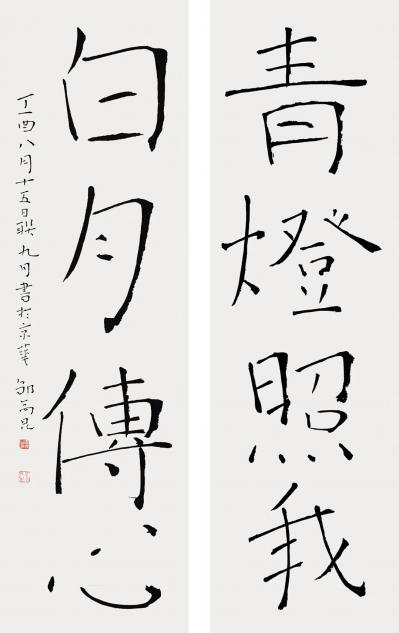 青燈照我
白月傳心
丁酉八月十五日聯九月書於京華 鄒